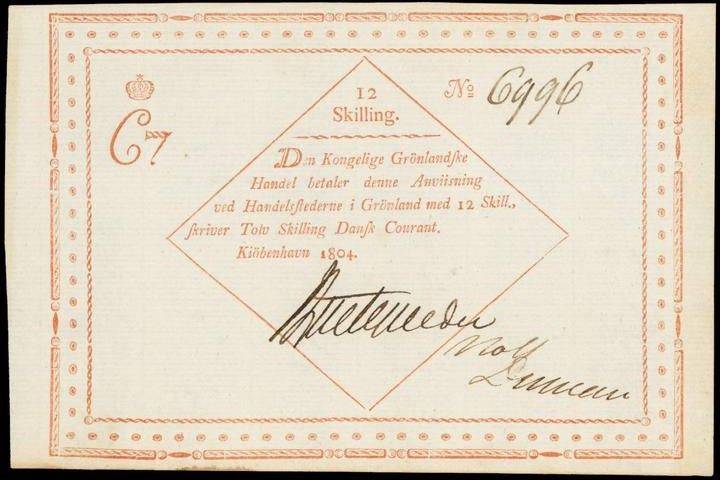 12
Skilling.
No 6996
C7
Den Kongelige Grönlandſke
Handel betaler denne Anviisning
ved Handelsſtederne i Grönland med 12 Skill.,
ſkriver Tolv Skilling Danſk Courant.
Kiöbenhavn 1804.